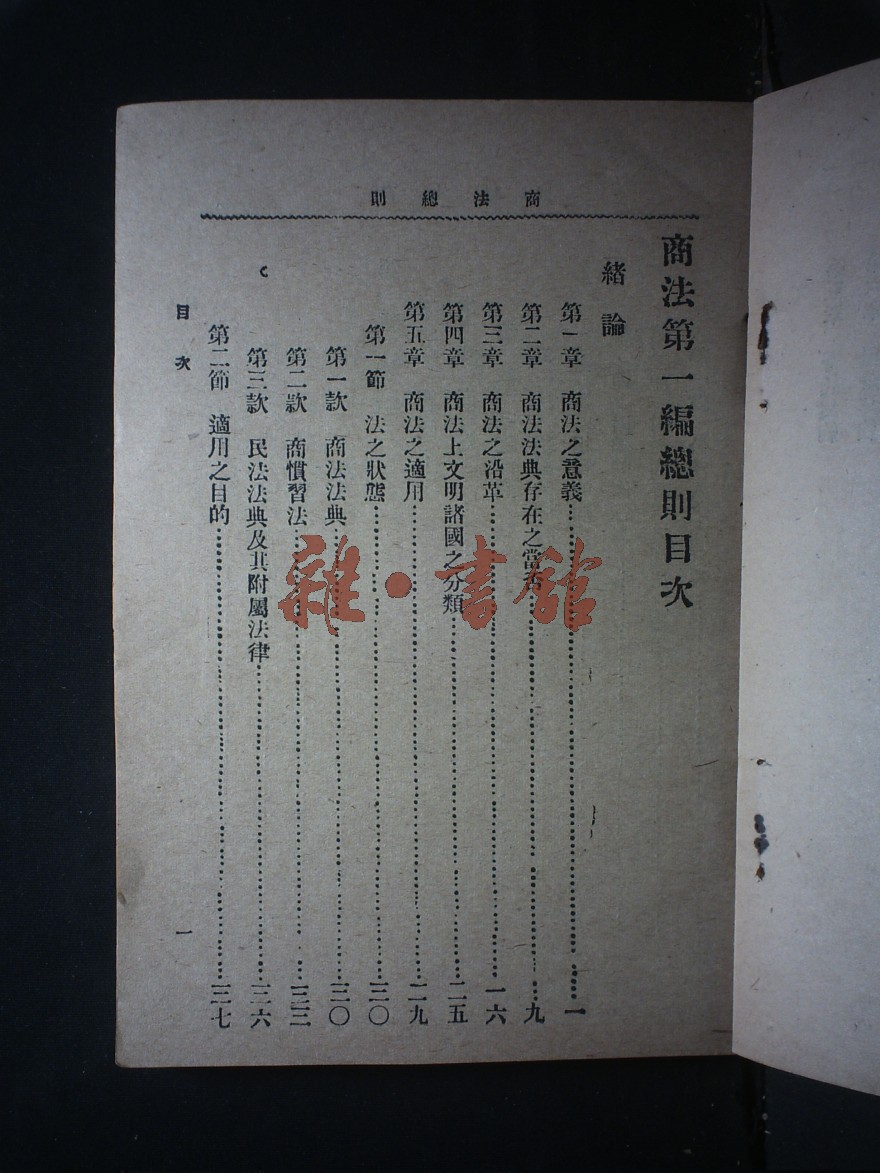 商法總則
商法第一編總則目次
緒論
第一章 商法之意義……一
第二章 商法法典存在之當否……九
第三章 商法之沿革……一六
第四章 商法上文明諸國之分類……二五
第五章 商法之適用……二九
第一節 法之狀態……三〇
第一款 商法法典……三〇
第二款 商慣習法……三三
第三款 民法法典及其附屬法律……三六
第二節 適用之目的……三七
目次
一
雜·書館